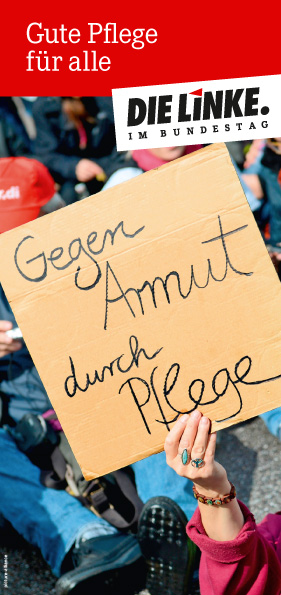 Gute Pflege
für alle
DIE LINKE.
IM BUNDESTAG
.di
Gegen
Armut
durch
Pflege